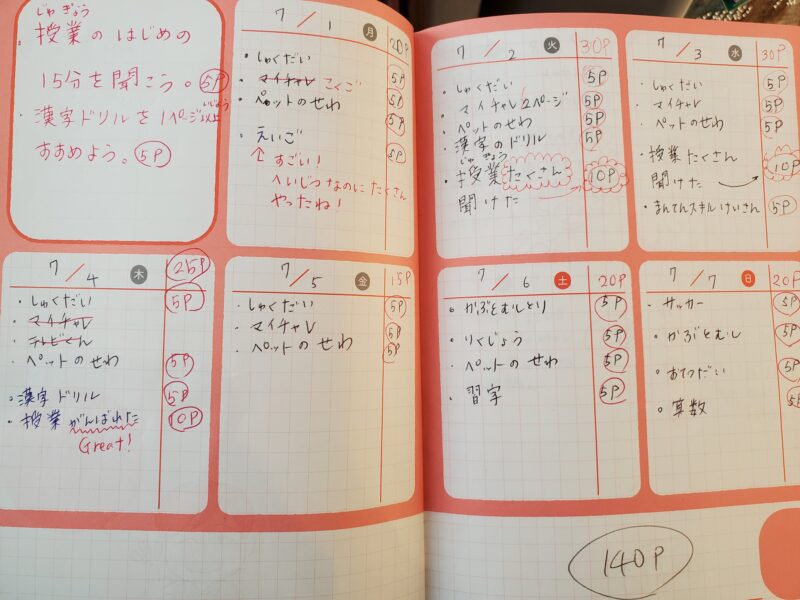 じゅぎょう
・授業のはじめの
15分を聞こう。5P
いじょう
・漢字ドリルを1ページ以上
すすめよう。5P
7/1 月 20P
・しゅくだい 5P
・マイチャレ こくご 5P
・ペットのせわ 5P
・えいご 5P
↑すごい!
へいじつなのにたくさん
やったね!
7/2 火 30P
・しゅくだい 5P
・マイチャレ2ページ 5P
・ペットのせわ 5P
・漢字のドリル 5P
じゅぎょう
・授業たくさん 10P
聞けた
7/3 水 30P
・しゅくだい 5P
・マイチャレ 5P
・ペットのせわ 5P
・授業たくさん
聞けた → 10P
・まんてんスキルけいさん 5P
7/4 木 25P
・しゅくだい 5P
・マイチャレ
・テレビくん
・ペットのせわ 5P
・漢字ドリル 5P
・授業がんばれた 10P
Great!
7/5 金 15P
・しゅくだい 5P
・マイチャレ 5P
・ペットのせわ 5P
7/6 土 20P
・かぶとむしとり 5P
・りくじょう 5P
・ペットのせわ 5P
・習字 5P
7/7 日 20P
・サッカー 5P
・かぶとむし 5P
・おてつだい 5P
・算数 5P
140P